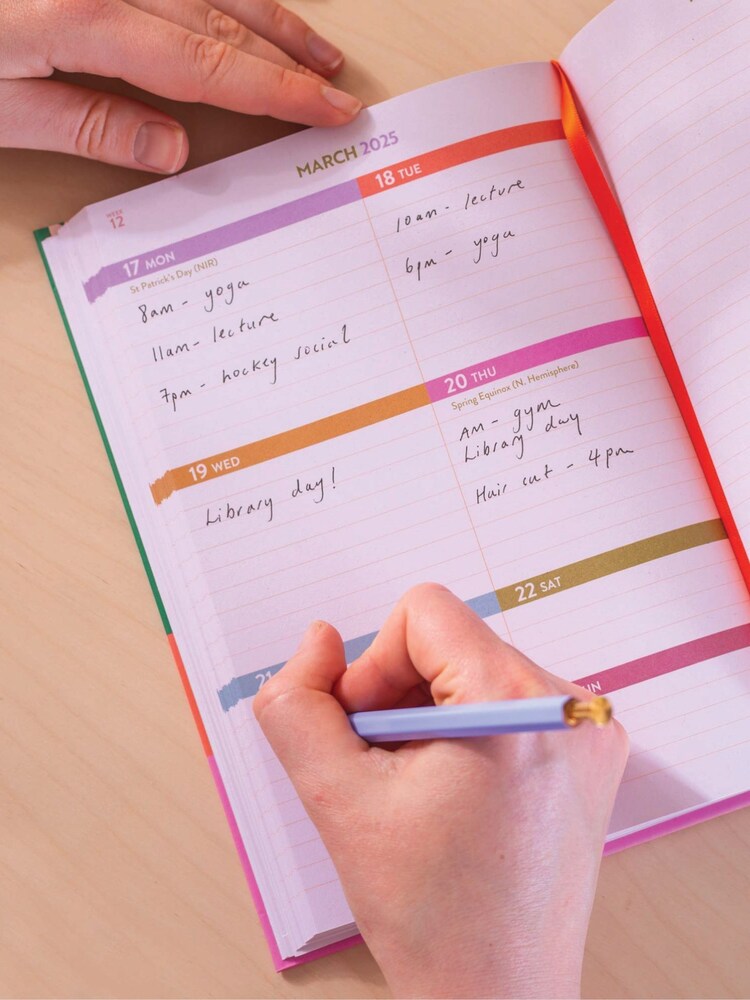 MARCH 2025
WEEK
12
17 MON
St Patrick's Day (NIR)
8am - yoga
11am - lecture
7pm - hockey social
18 TUE
10am - lecture
6pm - yoga
19 WED
Library day!
20 THU
Spring Equinox (N. Hemisphere)
AM - gym
Library day
Hair cut - 4pm
21
22 SAT
UN